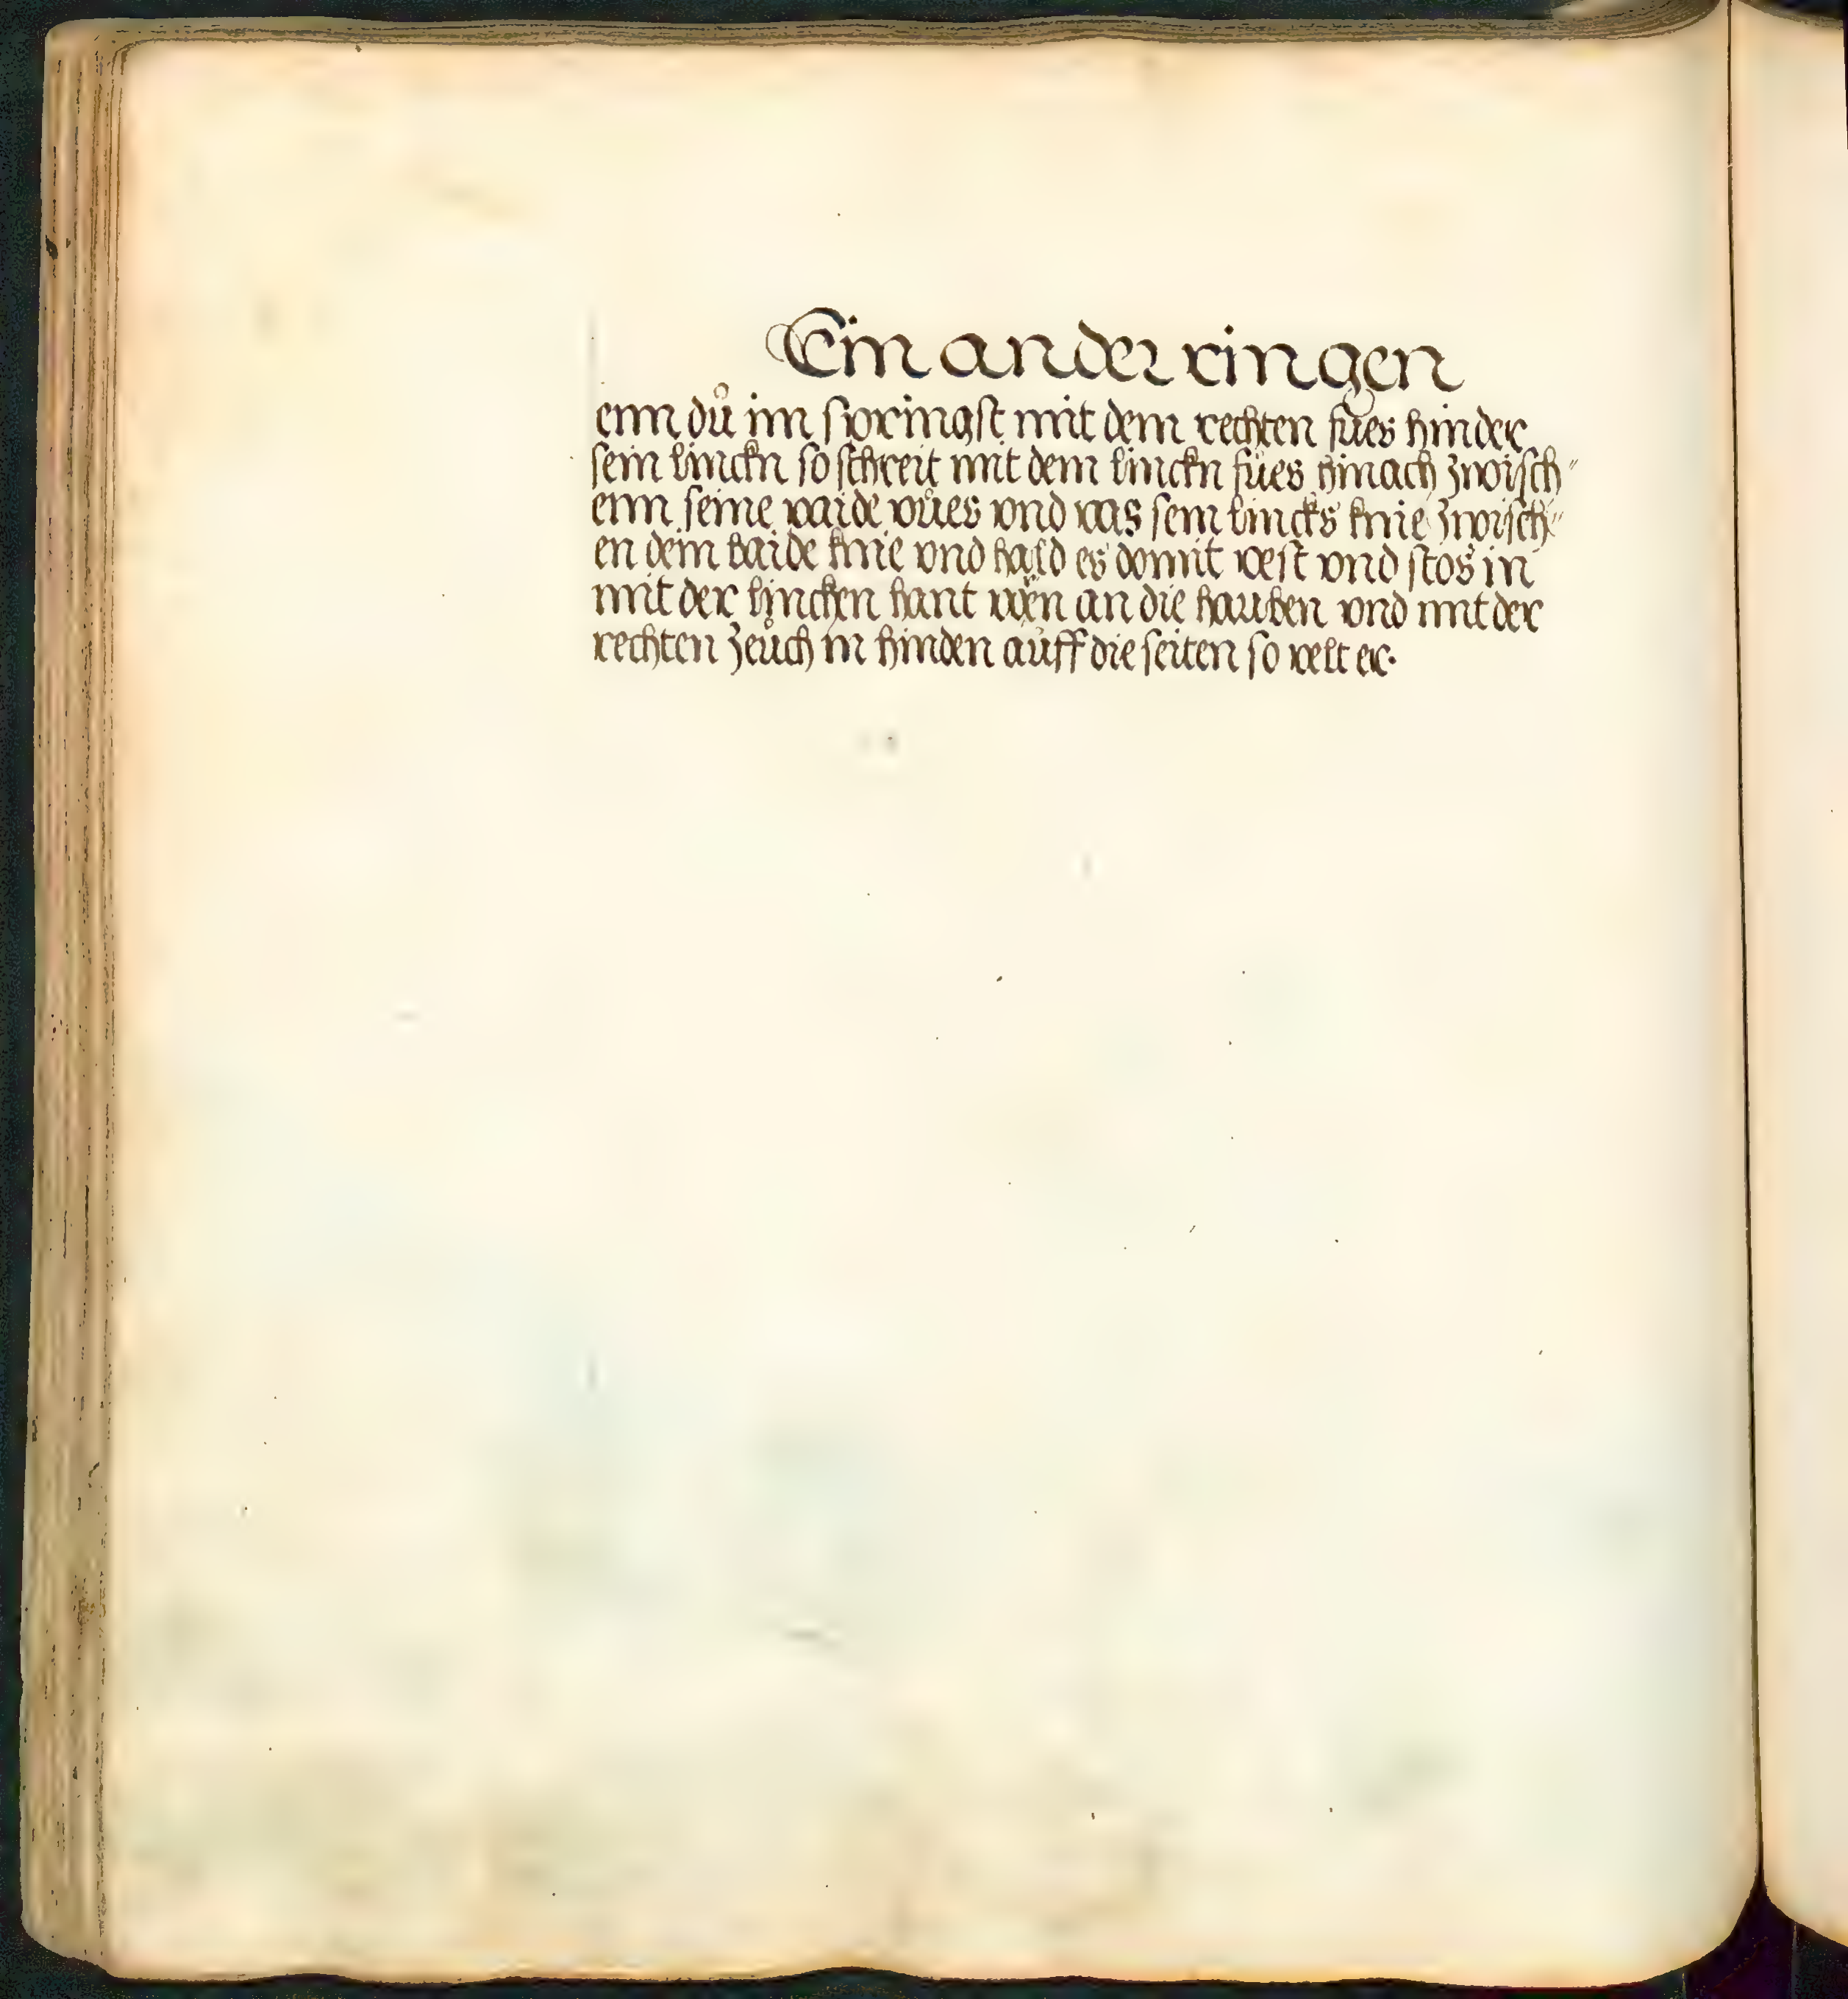 Ein ander ringen
enn dů im springst mit dem rechten fues hinder
sein linckn so schreit mit dem linckn fůes hinach zwisch"
enn seine paide vůes vnd vas sein lincks knie zwisch"
en dein baide knie vnd hald es domit vest vnd stos in
mit der lincken hant an die hauben vnd mit der
rechten zeůch in hinden aůff die seiten so velt er.